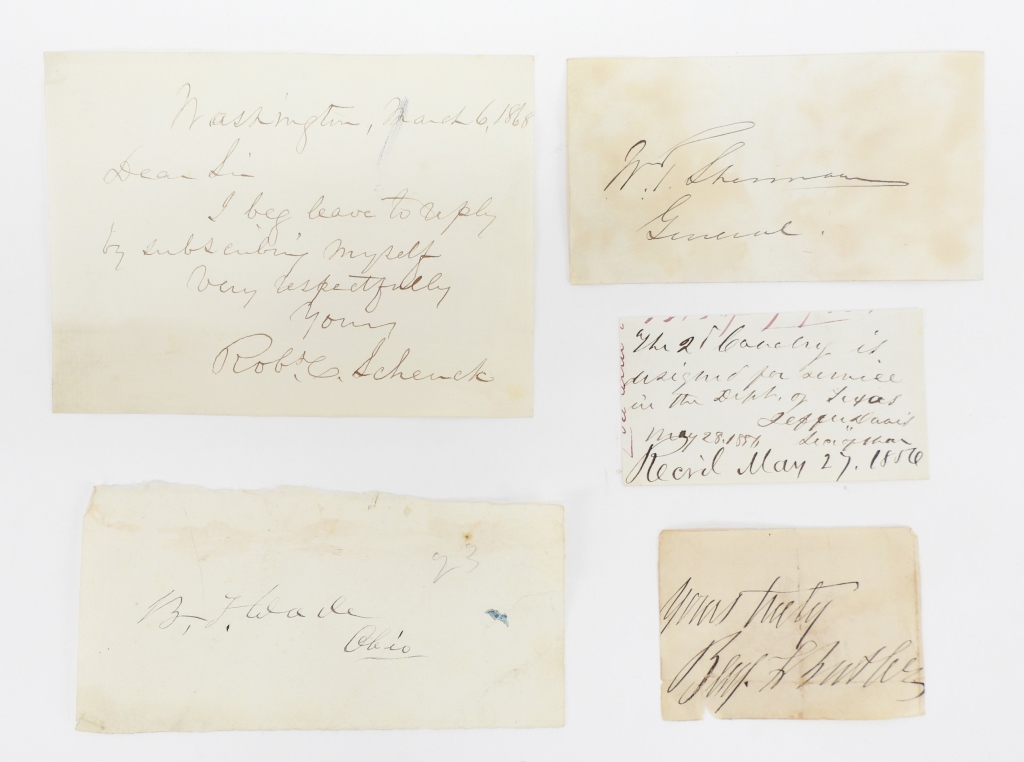 Washington, March 6, 1868
Dear Sir
I beg leave to reply
by subscribing myself
Very respectfully
Yours
Robt. C. Schenck
Wm. T. Sherman
General.
"The 2d Cavalry is
assigned for service
in the Dept. of Texas
Jeffn Davis
May 28. 1856
Recvd May 27. 1856
B, F. Wade
Ohio
93
Yours truly
Benj. F. Butler